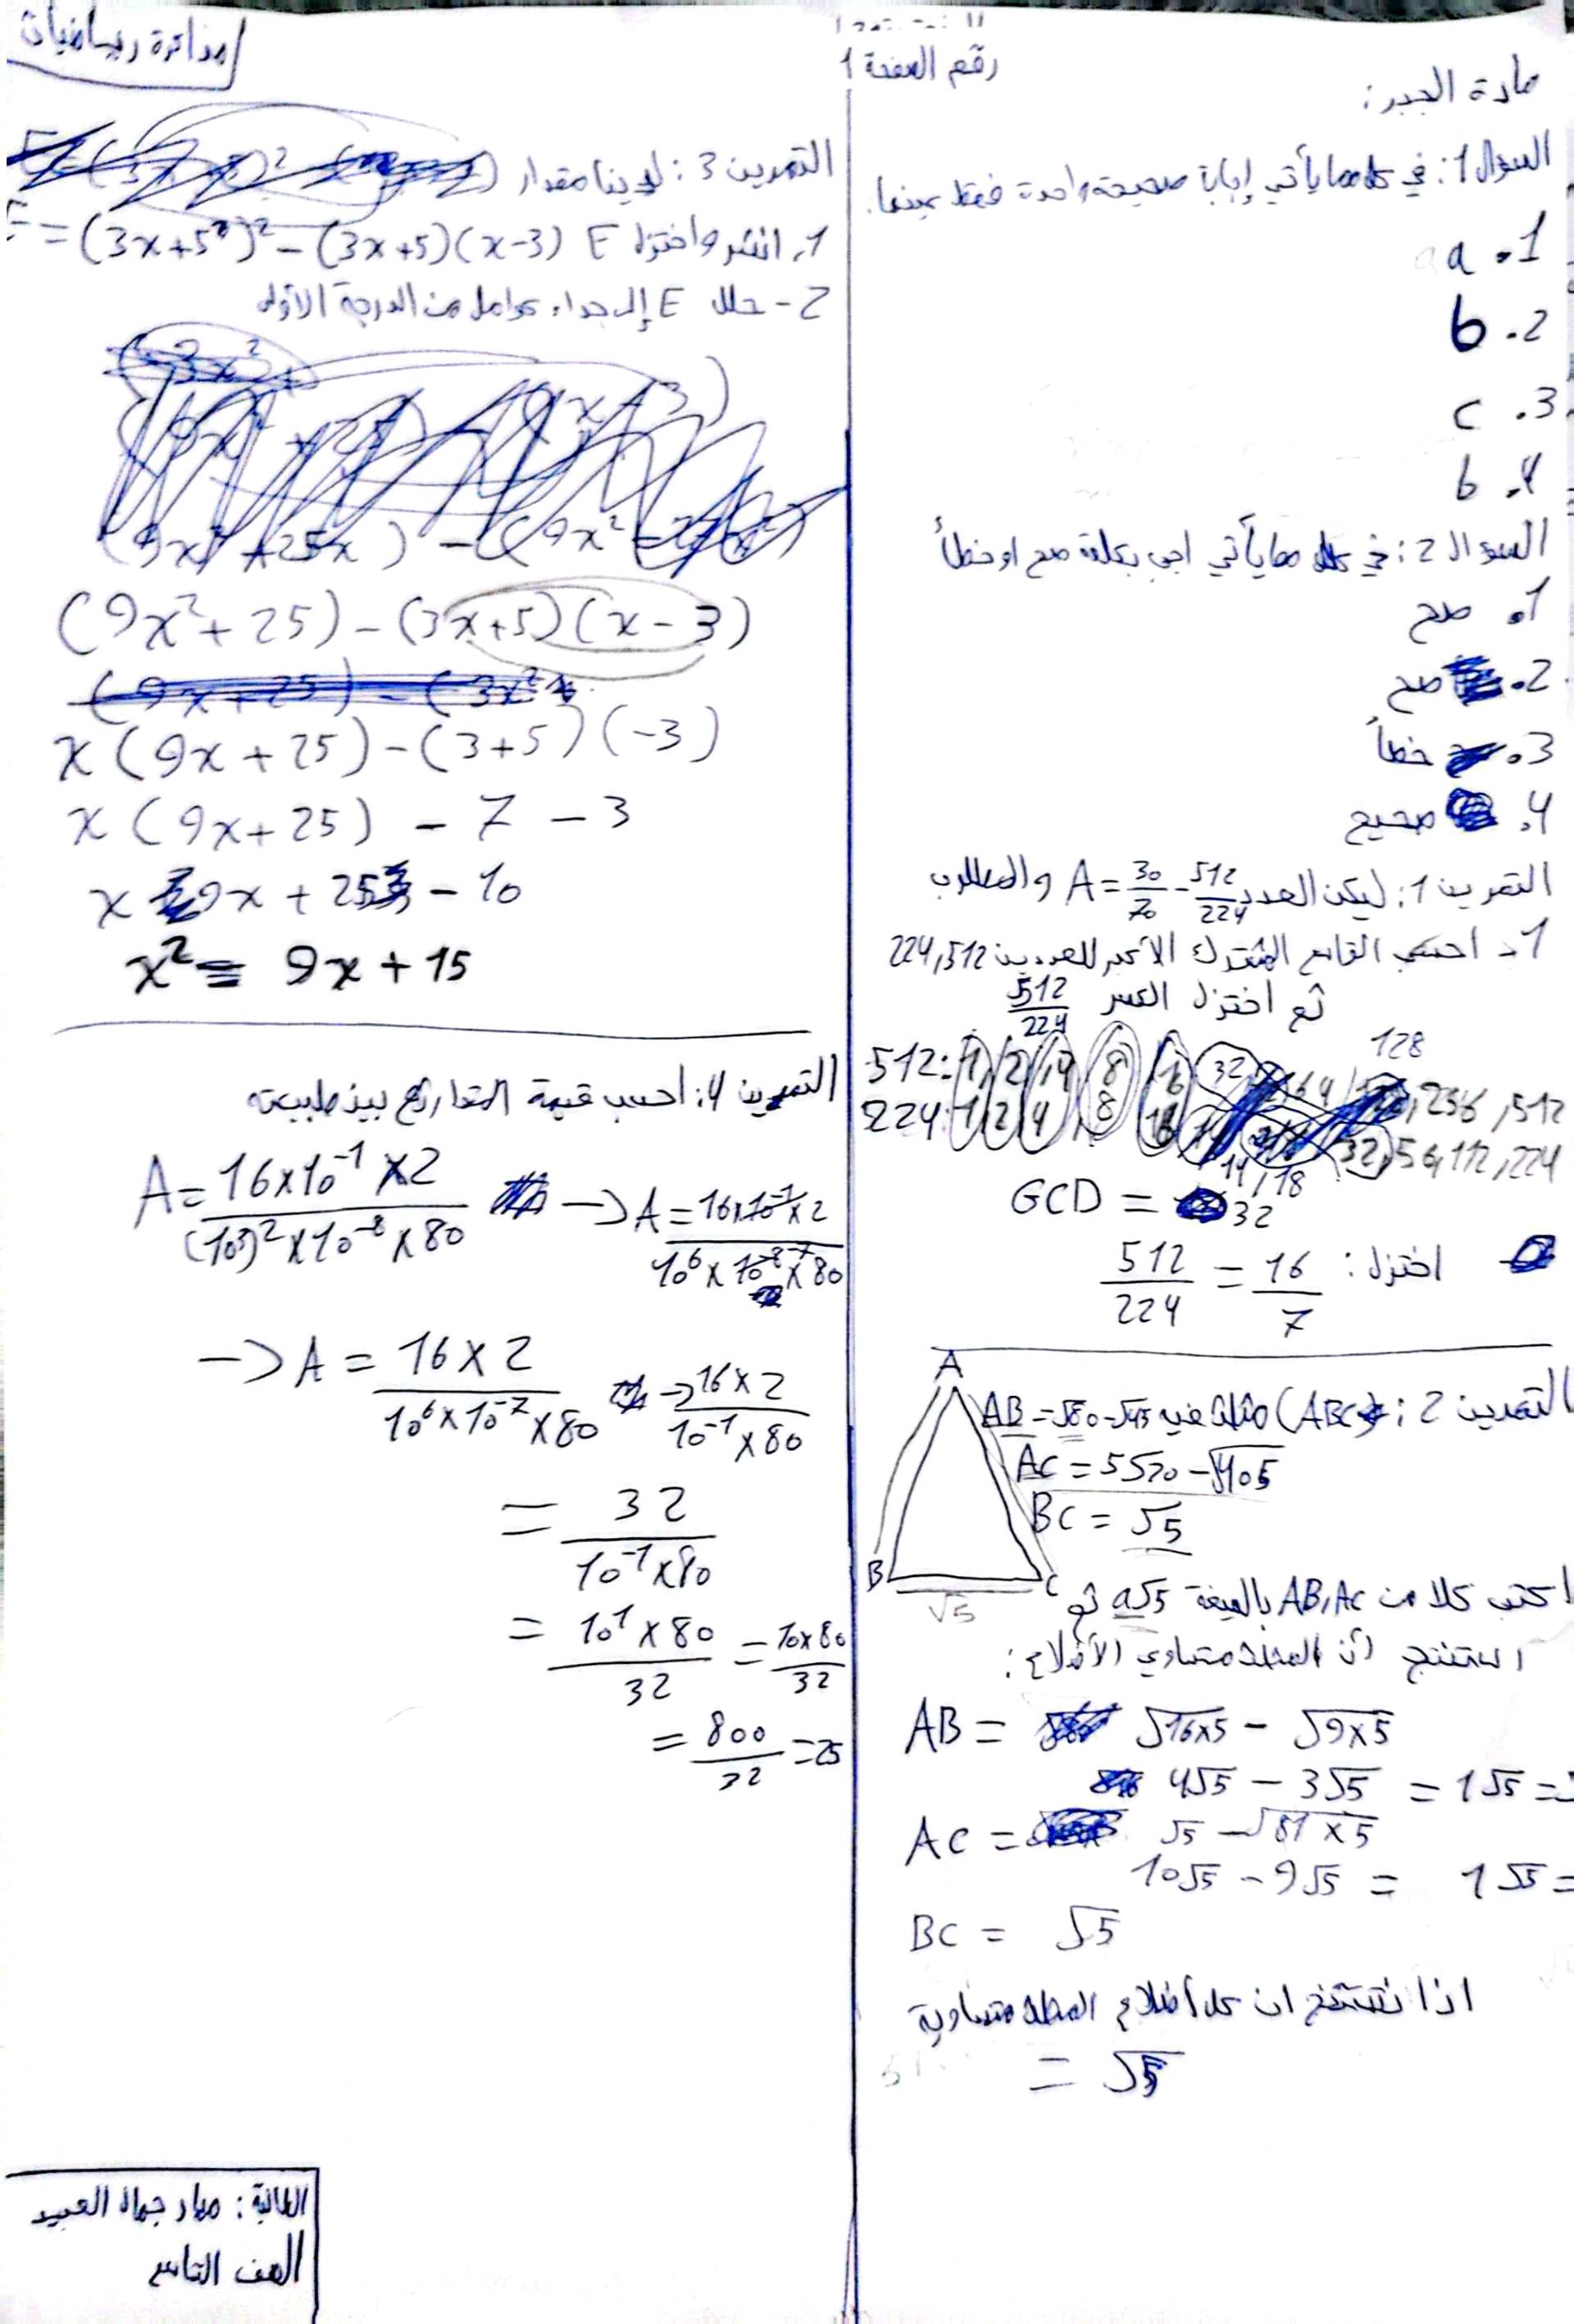 مذاكرة رياضيات
رقم الصفحة 1
مادة الجبر:
السؤال 1: في كل مما يأتي إجابة صحيحة واحدة فقط عينها.
1. a
2. b
3. c
4. b
السؤال 2: في كل مما يأتي اجب بكلمة صح او خطأ
1. صح
2. صح
3. خطأ
4. صحيح
التمرين 1: ليكن العدد A = 30/70 - 512/224 والمطلوب
1- احسب القاسم المشترك الأكبر للعددين 512, 224
ثم اختزل الكسر 512/224
512: 1, 2, 4, 8, 16, 32, 64, 128, 256, 512
224: 1, 2, 4, 8, 16, 14, 18, 32, 56, 112, 224
GCD = 32
اختزل: 512/224 = 16/7
التمرين 2: (ABC) مثلث فيه AB = √80 - √45
AC = 5√20 - √405
BC = √5
A
B
C
√5
اكتب كلا من AB, AC بالصيغة a√5 ثم
استنتج أن المثلث متساوي الأضلاع:
AB = √16×5 - √9×5
4√5 - 3√5 = 1√5 =
AC = √5 - √81×5
10√5 - 9√5 = 1√5 =
BC = √5
اذا نستنتج ان كل أضلاع المثلث متساوية
= √5
التمرين 3: لدينا مقدار
1. انشر واختزل E = (3x+5)² - (3x+5)(x-3)
2- حلل E إلى جداء عوامل من الدرجة الأولى
(9x²+25) - (3x+5)(x-3)
x(9x+25) - (3+5)(-3)
x(9x+25) - 7 - 3
x 9x + 25 - 10
x² = 9x + 15
التمرين 4: احسب قيمة المقدار A ثم بين طبيعته
A = 16×10⁻¹×2 / (10³)²×10⁻⁸×80 → A = 16×10⁻¹×2 / 10⁶×10⁻⁸⁻⁷×80
→ A = 16×2 / 10⁶×10⁻⁷×80 → 16×2 / 10⁻¹×80
= 32 / 10⁻¹×80
= 10¹×80 / 32 = 10×80 / 32
= 800/32 = 25
الصف التاسع